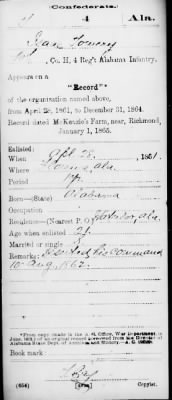 Confederate.
4 Ala.
Co. H, 4 Reg't Alabama Infantry.
Appears on a
"Record"
of the organization named above,
from April 28, 1861, to December 31, 1864.
Record dated McKenzie's Farm, near Richmond,
January 1, 1865.
Enlisted:
When 28, 1861.
Where Ala.
Period
Born—(State) Alabama
Occupation
Residence—(Nearest P. O.) Ala.
Age when enlisted 21
Married or single
Remarks: Deserted his command
10 Aug. 1862.
*From copy made in the A. G. Office, War Department, in
of an original record borrowed from the Director of
Alabama State Dept. of Archives and History. A. G. Office.
Book mark
(654)
Copyist.